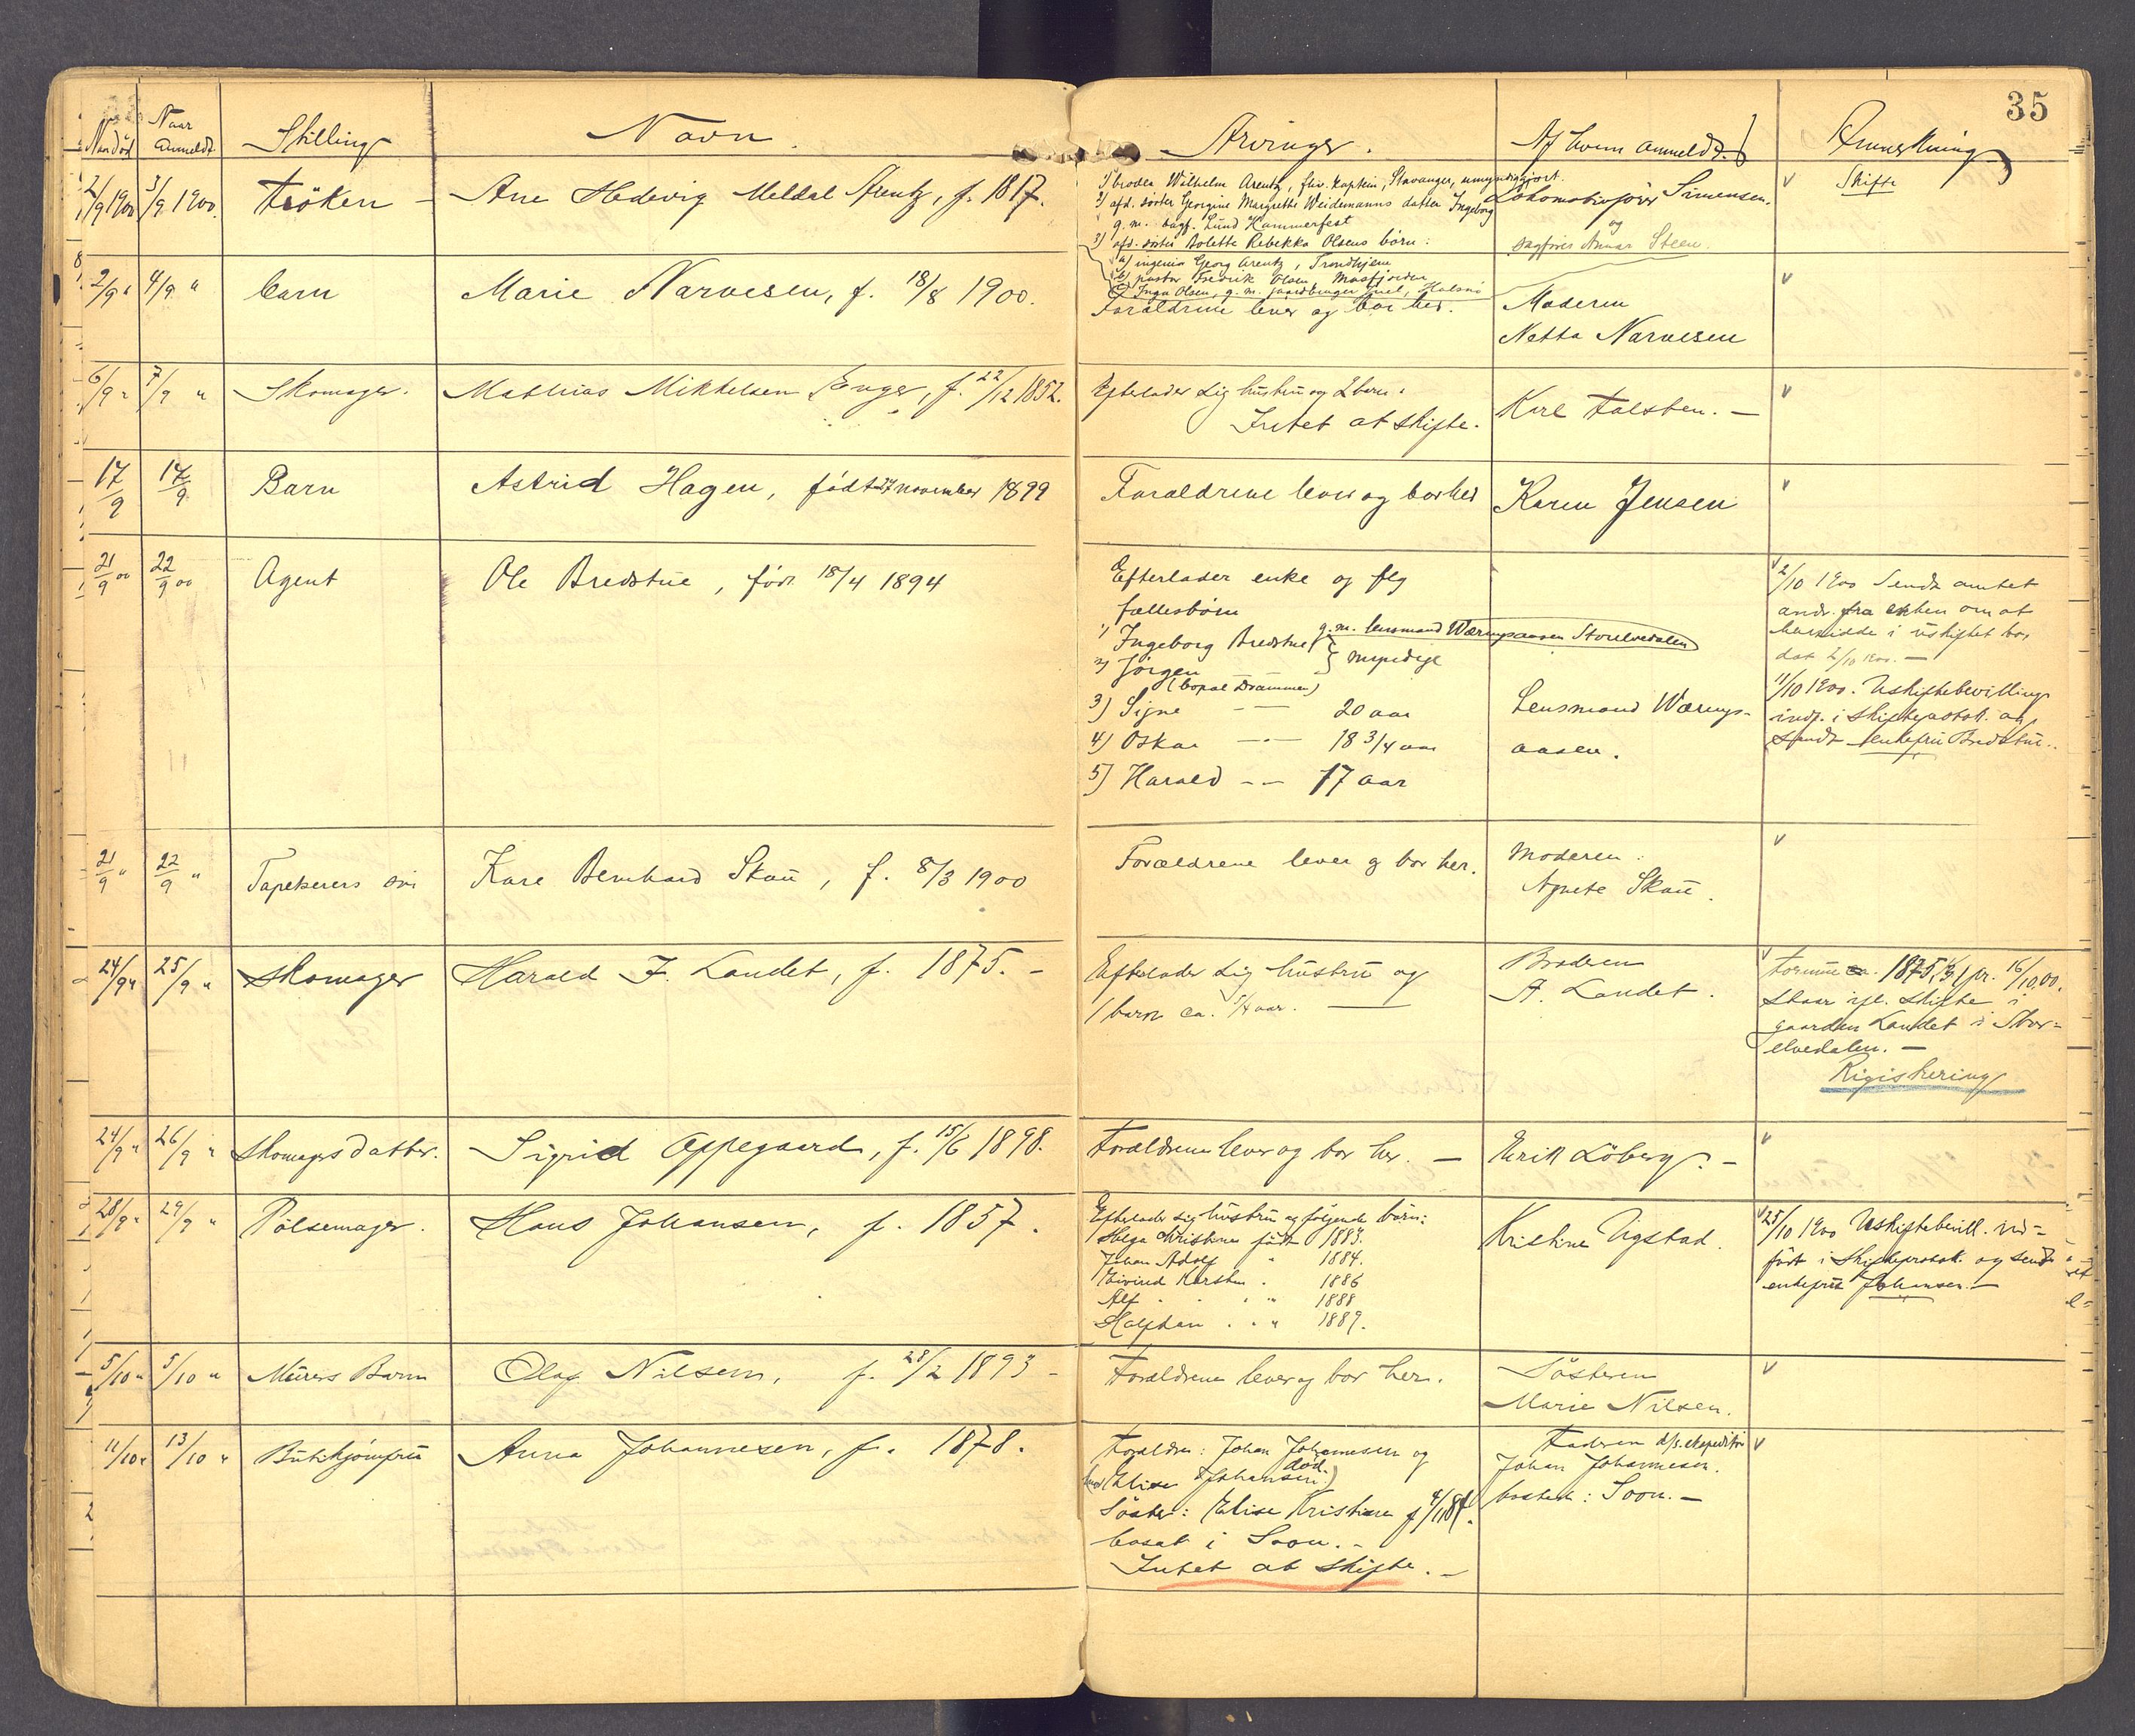 35
Naar død
Naar anmeldt
Stilling
Navn.
Arvinger.
Af hvem anmeldt.
Anmerkning
2/9 1900
3/9 1900.
Frøken
Ane Hedevig Meldal Arentz, f. 1817.
1) broder Wilhelm Arentz, fhv. kaptein, Stavanger, umyndiggjort.
2) afd. søster Georgine Margrethe Weidemanns datter Ingeborg
g. m. Lund Hammerfest
3) afd. søster Bolette Rebekka Olsens børn:
a) ingeniør Georg Arentz, Trondhjem
b) pastor Fredrik Olsen
c) Inga Olsen, g. m.
Lokomotivfører Simensen.
og
sagfører Steen.
v
Skifte
2/9 "
4/9 "
barn
Marie Narvesen, f. 18/8 1900.
Forældrene lever og bor her.
Moderen
Netta Narvesen
v
6/9 "
7/9 "
Skomager.
Mathias Mikkelsen Enger, f. 22/12 1852.
Efterlader sig hustru og 2 barn.
Intet at skifte.
Karl Falsten. —
v
17/9
17/9
Barn
Astrid Hagen, født 27 november 1899
Forældrene lever og bor her
Karen Jensen
v
21/9 00
22/9 00
Agent
Ole Bredstue, født 18/4 1894
Efterlader enke og flg
fællesbørn
1) Ingeborg Bredstue g. m. lensmand Wærnpaasen Storelvedalen
2) Jørgen myndige
(bopæl Drammen)
3) Signe — — 20 aar
4) Oskar — — 18 3/4 aar
5) Harald — — 17 aar
Lensmand Wærnps-
aasen.
v 2/10 1900 Sendt amtet
andr. fra enken om at
hensidde i uskiftet bo,
dat 2/10 1900. —
11/10 1900. Uskiftebevilling
indt. i skifteprotok. og
sendt enkefru Bredstue.
21/9 "
22/9 "
Tapetserers søn
Kare Bernhard Skau, f. 8/3 1900
Forældrene lever og bor her.
Moderen:
Agnete Skau.
v
24/9 "
25/9 "
Skomager
Harald J. Landet, f. 1875. -
Efterlader sig hustru og
1 barn ca. 5/4 aar. —
Broderen
A. Landet.
v Formue ca. 1875, pr. 16/10.00.
skifte i
gaarden Landet i Stor-
elvedalen. —
Registrering
24/9 "
26/9 "
Skomagers datter.
Sigrid Oppegaard, f. 15/6 1898.
Forældrene lever og bor her. —
Erik Løberg. -
v
28/9 "
29/9 "
Pølsemager.
Hans Johansen, f. 1857.
Efterlader sig hustru og følgende børn:
Helga Christine født 1883.
Johan Adolf " 1884.
Eivind Karsten " 1886
Alf " " 1888
Halfdan " " 1889.
Kristine Vigstad.
v 25/10 1900 Uskiftebevill. ind-
ført i skifteprotok. og sendt
enkefru Johansen. —
5/10 "
5/10 "
Murers Barn
Olaf Nilsen, f. 28/2 1893 -
Forældrene lever og bor her.
Søsteren
Marie Nilsen.
v
11/10 "
13/10 "
Butikjomfru
Anna Johannesen, f. 1878.
Forældre: Johan Johannesen og
Elise Johansen (død.)
Søster: Elise Kristiane f
bosat i Soon. -
Intet at skifte. —
Faderen d/s. ekspeditør
Johan Johannesen.
bosted: Soon. —
v